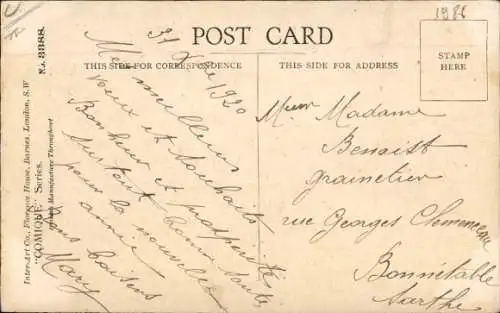 1986
POST CARD
THIS SIDE FOR CORRESPONDENCE
THIS SIDE FOR ADDRESS
STAMP
HERE
Inter-Art Co., Florence House, Barnes, London, S.W
"COMIQUE" Series.
No. 3888.
British Manufacture Throughout
31 Xbre 1920
Mes meilleurs
vœux et souhaits
Bonheur et prospérité
surtout bonne santé
pour la nouvelle
année
Bons baisers
Mary
Madame
Benoist
grainetier
rue Georges Clemenceau
Bonnétable
Sarthe